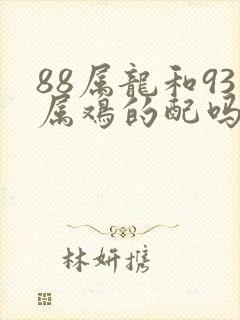 88属龍和93
属鸡的配吗
林妍携